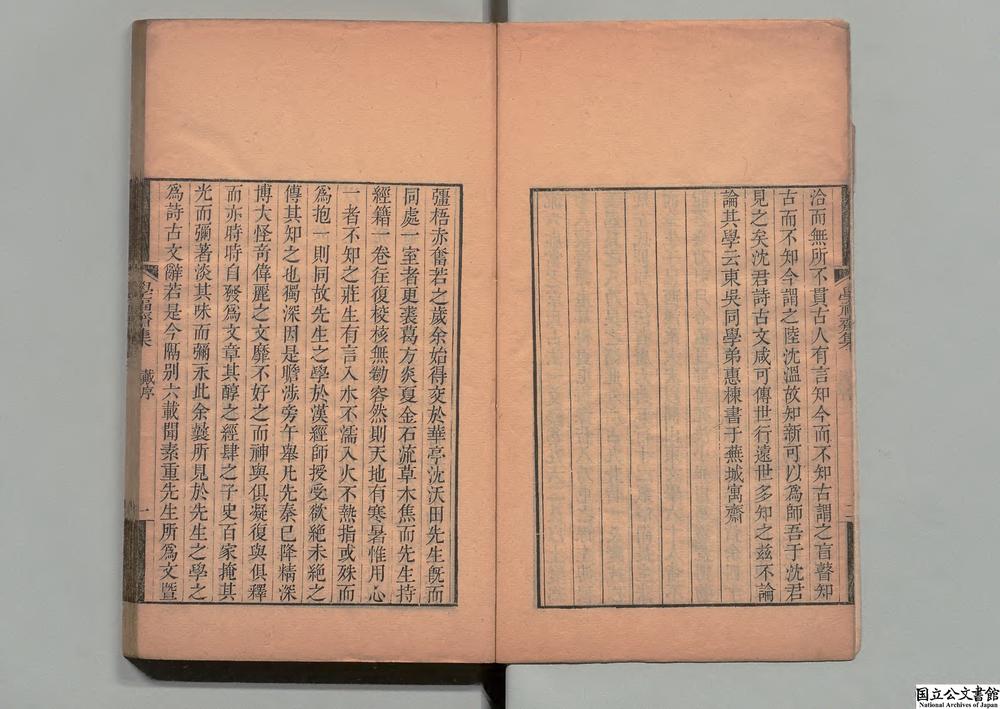 洽而無所不貫古人有言知今而不知古謂之盲瞽知
古而不知今謂之陸沈溫故知新可以爲師吾于沈君
見之矣沈君詩古文咸可傳世行遠世多知之玆不論
論其學云東吳同學弟惠棟書于蕪城寓齋
學福齋集
二
彊梧赤奮若之歲余始得交於華亭沈沃田先生旣而
同處一室者更裘葛方炎夏金石流草木焦而先生持
經籍一卷往復校核無勌容然則天地有寒暑惟用心
一者不知之莊生有言入水不濡入火不熱指或殊而
爲抱一則同故先生之學於漢經師授受欲絕未絕之
傳其知之也獨深因是贍涉旁午舉凡先秦已降精深
博大怪奇偉麗之文靡不好之而神與俱凝復與俱釋
而亦時時自發爲文章其醇之經肆之子史百家掩其
光而彌著淡其味而彌永此余曩所見於先生之學之
爲詩古文辭若是今隔别六載聞素重先生所爲文曁
學福齋集
戴序
一
国立公文書館
National Archives of Japan